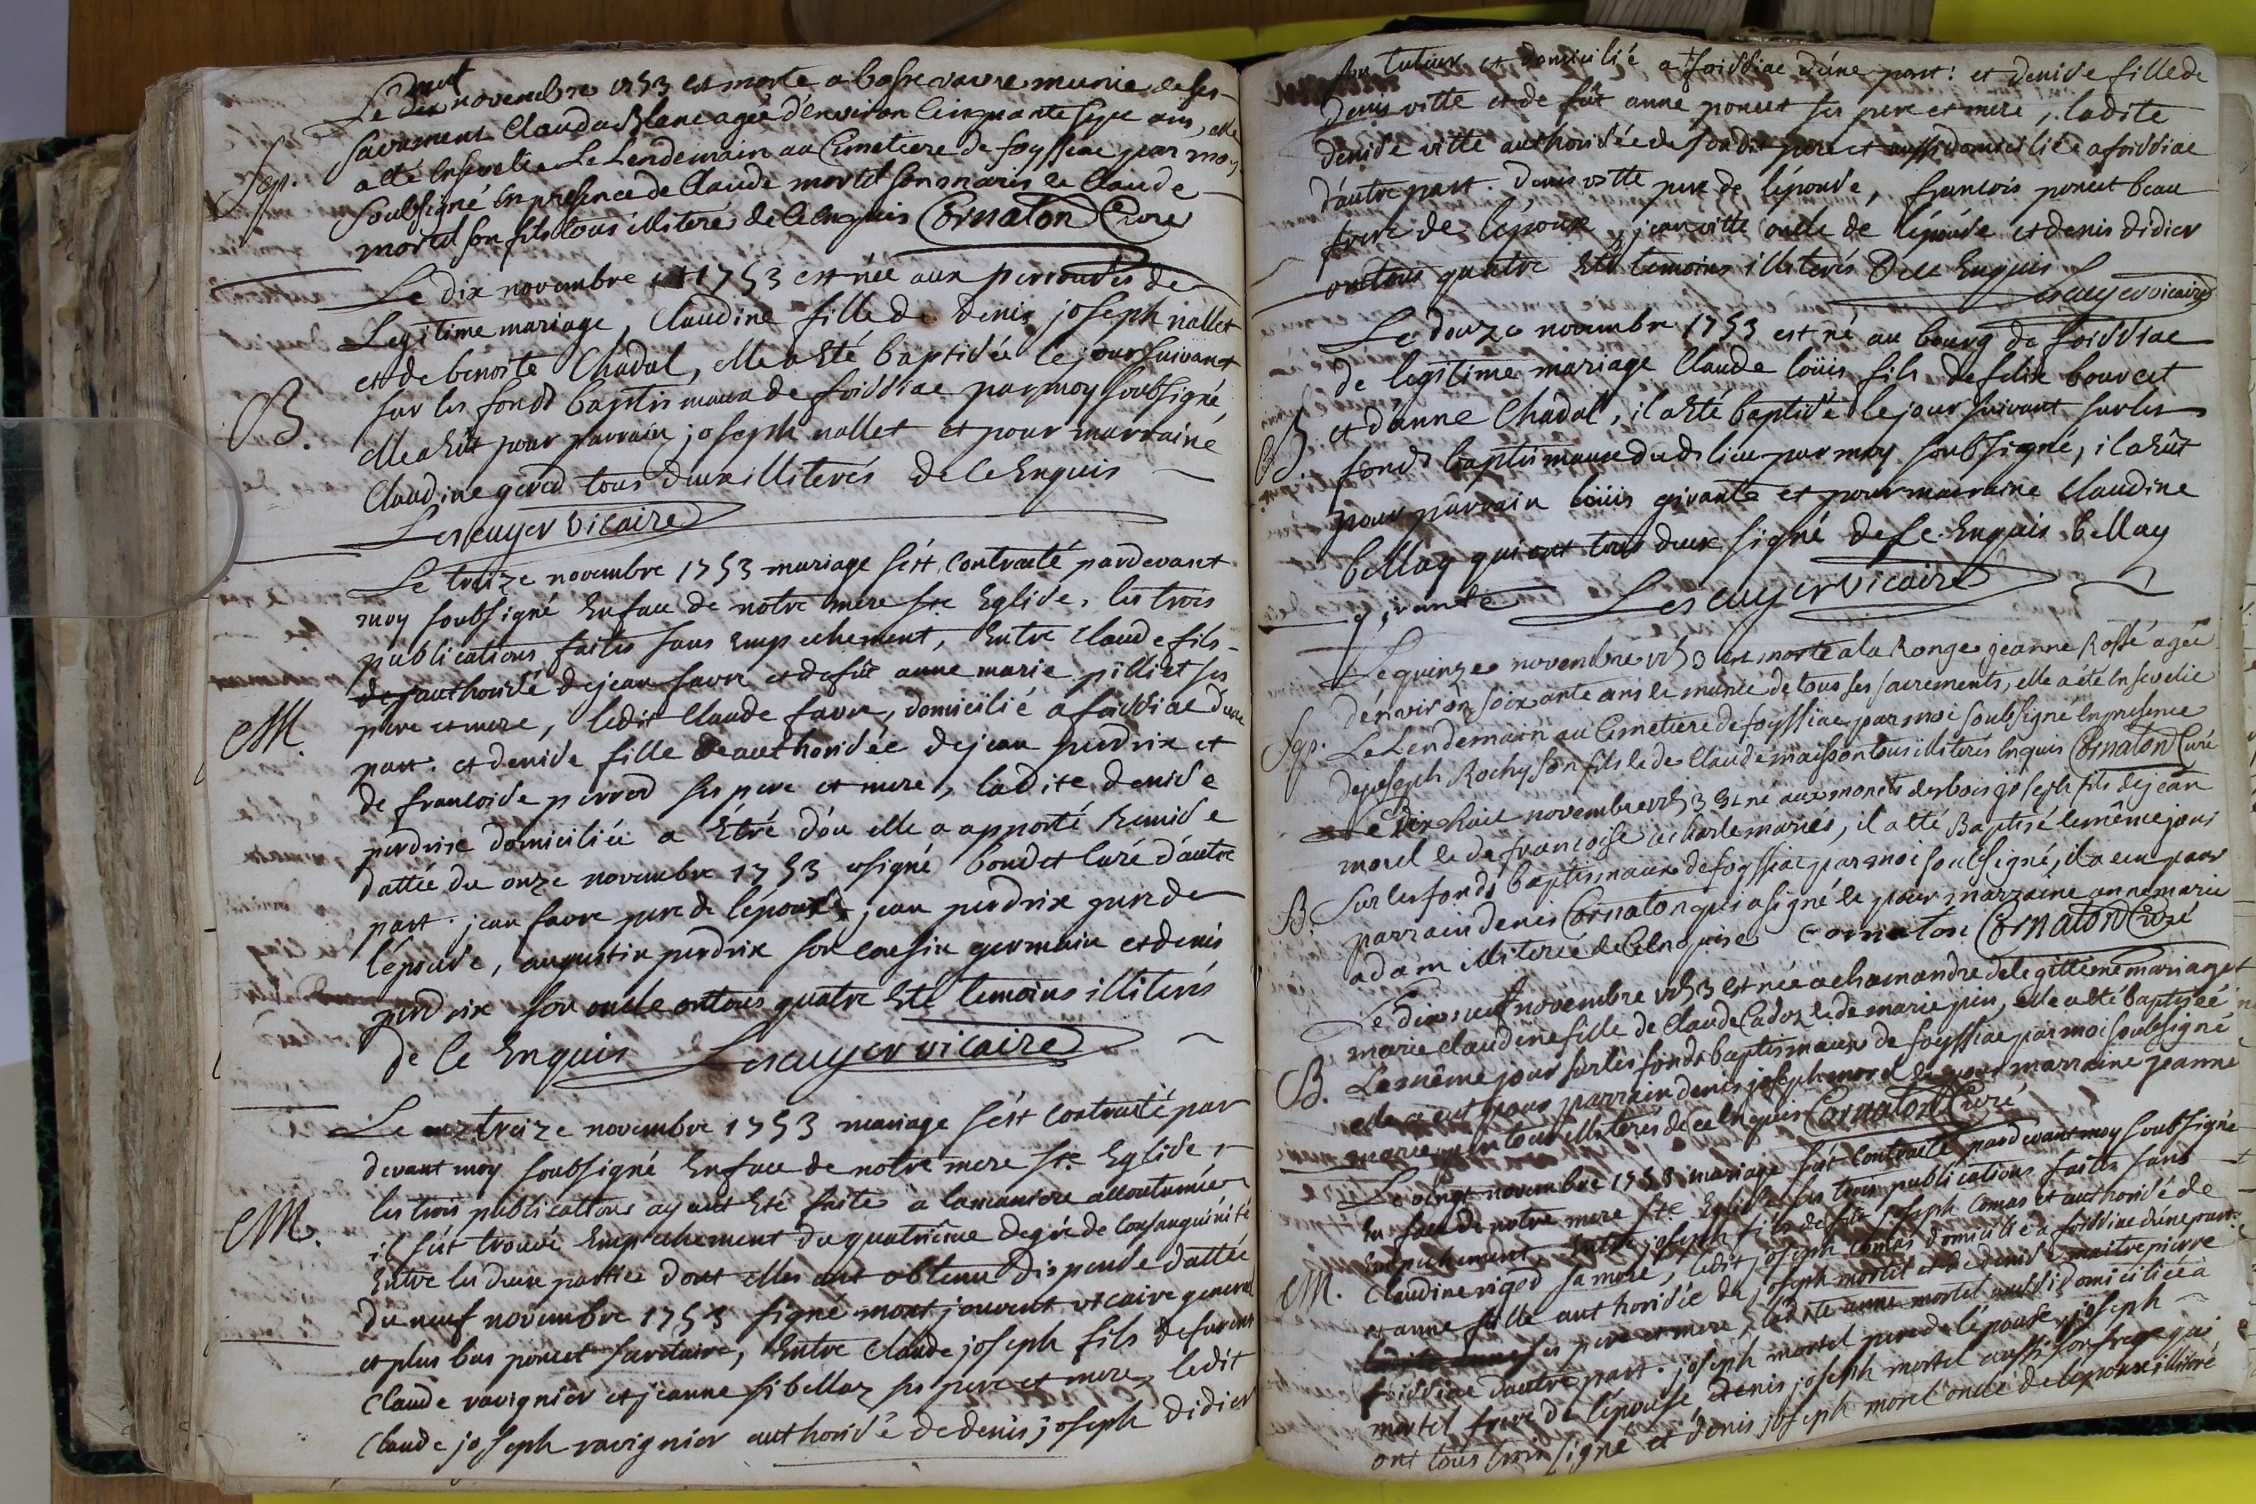 Le neuf novembre 1753 est morte a basse vavre munie de ses
sacrement Clauda Blanc agée d'environ Cinquante sept ans, elle
Sep. a eté Ensevelie Le Lendemain au Cimetiere de foyssiac par moy
soubsigné En presence de Claude mortel son maris & Claude
mortel son fils tous illiterés de Ce Enquis Cornaton Curé
Le dix novembre 1753 est née aux perroudes de
Legitime mariage, Claudine fille de denis joseph nallet
et de benoite Chadal, elle a Eté baptisée le jour suivant
B. sur les fonds baptismaux de foissiac par moy soubsigné
elle a Eût pour parrain joseph nallet et pour marraine
Claudine gerod tous deux illiterés de Ce Enquis
Lescuyer vicaire
Le treize novembre 1753 mariage s'est Contracté pardevant
moy soubsigné En face de notre mere ste Eglise, les trois
publications faites sans Empechement, Entre Claude fils
authorisé de jean favre et de fût anne marie pilliet ses
M. pere et mere, ledit Claude favre, domicilié a foissiac d'une
part. et denise fille authorisée de jean perdrix et
de francoise perrod ses pere et mere, ladite denise
perdrix domiciliée a Etré d'ou elle a apporté Remise
dattée du onze novembre 1753 signé bondet Curé d'autre
part. jean favre pere de l'epoux, jean perdrix pere de
l'épouse, augustin perdrix son cousin germain et denis
perdrix son oncle ont tous quatre Eté temoins illiterés
de Ce Enquis Lescuyer vicaire
Le treize novembre 1753 mariage s'est Contracté par
devant moy soubsigné En face de notre mere ste Eglise,
les trois publications ayant Eté faites a la maniere accoutumée
M. il s'est trouvé Empechement du quatrieme degré de Consanguinité
Entre les deux parties dont elles ont obtenu dispense dattée
du neuf novembre 1753 signé montjouvent vicaire general
et plus bas poncet secretaire, Entre Claude joseph fils de furent
Claude ravignier et jeanne sibellaz ses pere et mere, ledit
Claude joseph ravignier authorisé de denis joseph didier
son tuteur et domicilié a foissiac d'une part: et denise fille de
denis vitte et de fût anne poncet ses pere et mere, ladite
denise vitte authorisée de son dit pere et aussi domiciliée a foissiac
d'autre part. denis vitte pere de l'épouse, francois poncet beau
frere de l'époux, jean vitte oncle de l'épouse et denis didier
ont tous quatre Eté temoins illiterés De Ce Enquis
Lescuyer vicaire
Le douze novembre 1753 est né au bourg de foissiac
de legitime mariage Claude loüis fils de felix bourcet
B. et d'anne Chadal, il a Eté baptisé le jour suivant sur les
fonds baptismaux dudt lieu par moy soubsigné, il a Eût
pour parrain loüis girante et pour marraine Claudine
bellay qui ont tous deux signé de Ce Enquis bellay
girante Lescuyer vicaire
Le quinze novembre 1753 est morte a la Ronge jeanne Rossé agée
d'environ soixante ans & munie de tous ses sacrements, elle a été Ensevelie
Sep. Le Lendemain au Cimetiere de foyssiac par moi soubsigné En presence
de joseph Rochy son fils & de Claude maisson tous illiterés Enquis Cornaton Curé
Le Dix huit novembre 1753 Est né aux monts des bois joseph fils de jean
morel & de francoise mariés, il a eté Baptisé le même jour
sur les fonds baptismaux de foyssiac par moi soubsigné, il a eu pour
B. parrain denis Cornaton qui a signé & pour marraine anne marie
adam illiterée de Ce Enquise Cornaton Cornaton Curé
Le Dix neuf novembre 1753 est née a chamandre de legitteme mariage
marie claudine fille de Claude Cadoz & de marie pin, elle a eté baptisée
B. Le même jour sur les fonds baptismaux de foyssiac par moi soubsigné
elle a eut pour parrain denis joseph morel & pour marraine jeanne
marie pin tous illiterés de ce Enquis Cornaton Curé
Le vingt novembre 1753 mariage s'est Contracté pardevant moy soubsigné
En face de notre mere ste Eglise les trois publications faites sans
Empechement, Entre joseph fils de fût joseph Comas et authorisé de
M. Claudine rigod sa mere, ledit joseph Comas domicilié a foissiac d'une part:
et anne fille authorisée de joseph mortel et de denise maitrepierre
ses pere et mere, ladite anne mortel aussi domiciliée a
foissiac d'autre part. joseph mortel pere de l'épouse, joseph
mortel frere de l'épouse, denis joseph mortel aussi son frere qui
ont tous trois signé et denis joseph morel oncle de l'epoux illiteré